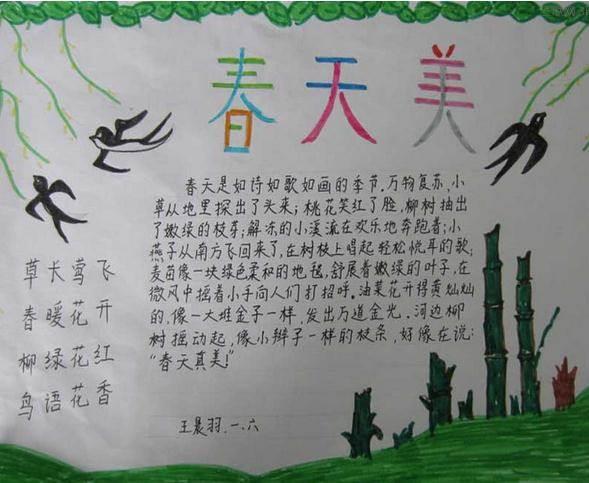 春天美
春天是如诗如歌如画的季节,万物复苏,小
草从地里探出了头来;桃花笑红了脸,柳树抽出
了嫩绿的枝芽;解冻的小溪流在欢乐地奔跑着;小
燕子从南方飞回来了,在树枝上唱起轻松悦耳的歌;
麦苗像一块绿色柔和的地毯,舒展着嫩绿的叶子,在
微风中摇着小手向人们打招呼。油菜花开得黄灿灿
的,像一大堆金子一样,发出万道金光。河边柳
树摇动起,像小辫子一样的枝条,好像在说:
“春天真美!”
王晨羽.一.六
草长莺飞
春暖花开
柳绿花红
鸟语花香